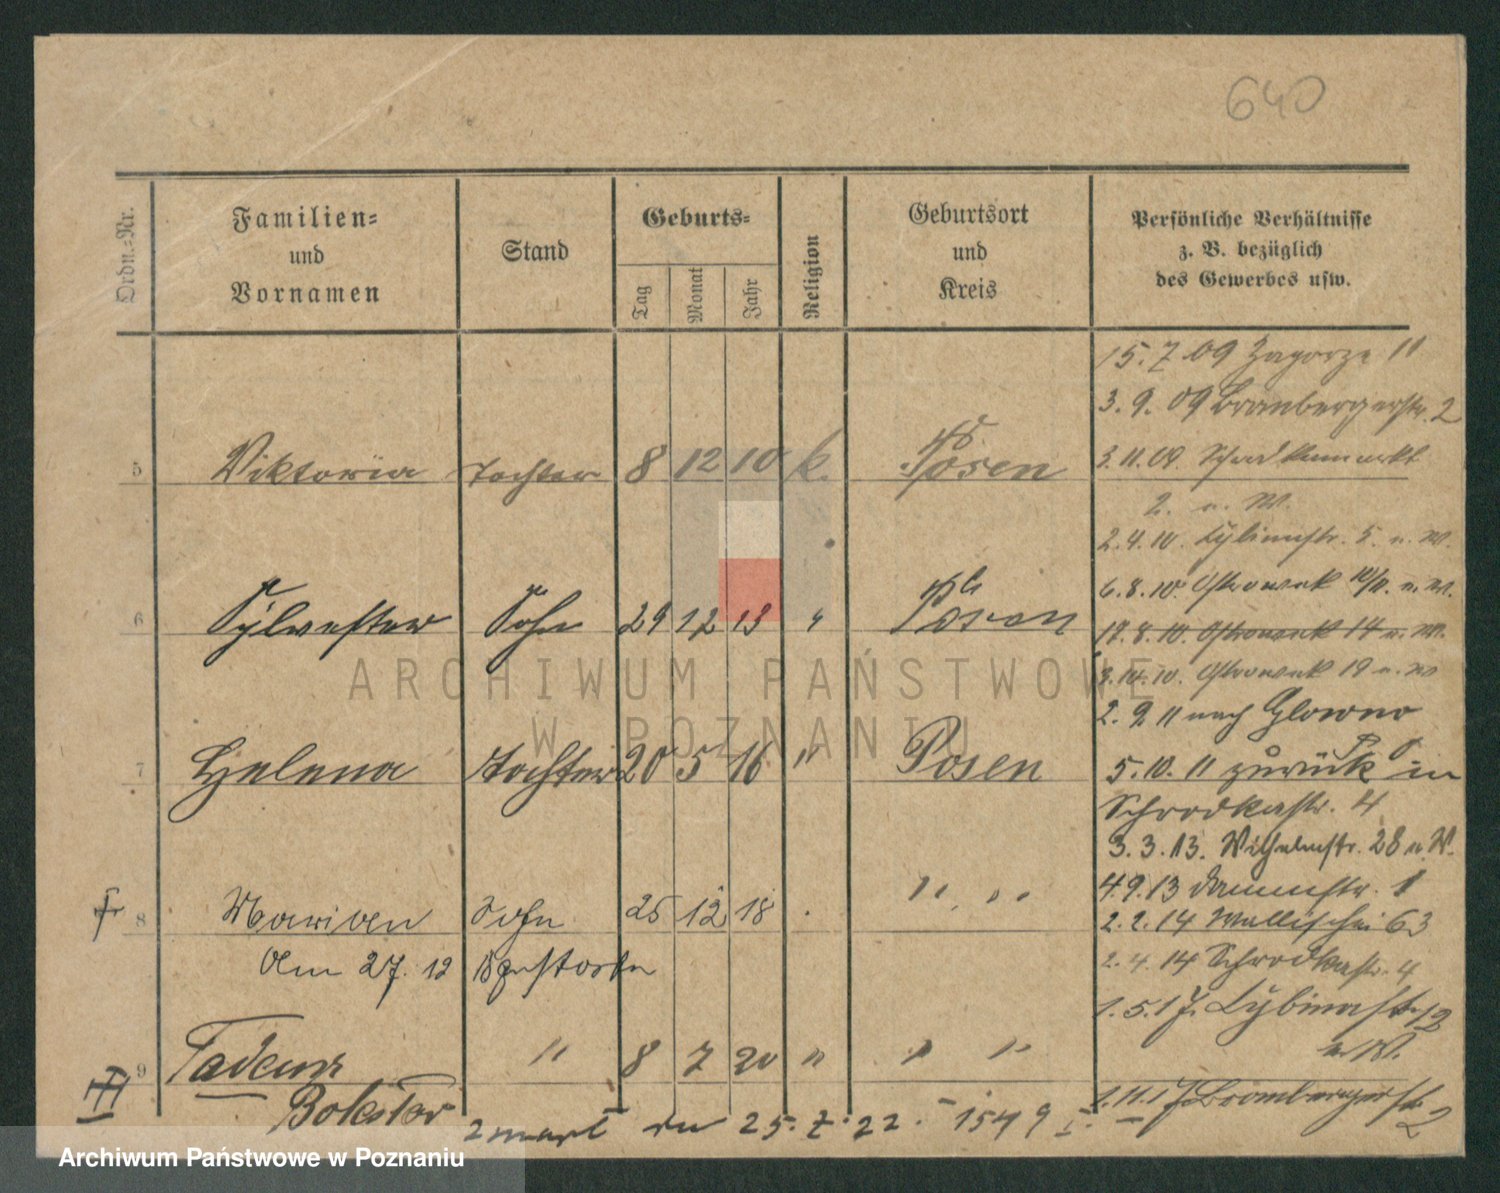 640
Ordn.-Nr.
Familien-
und
Vornamen
Stand
Geburts-
Tag
Monat
Jahr
Religion
Geburtsort
und
Kreis
Persönliche Verhältnisse
z. B. bezüglich
des Gewerbes usw.
15.7.09 Zagorze 11
3.9.09 Brombergerstr. 2
5 Viktoria Tochter 8 12 10 k. Posen
3.11.09. Schrodkamarkt
2. u. W.
2.4.10. Cybinastr. 5. u. W.
6 Sylvester Sohn 29 12 13 " Posen
6.8.10 Ostrowek 10/11. u. W.
17.8.10. Ostrowek 14 u. W.
3.10.10. Ostrowek 19 u. W
2.9 11 nach Glowno
7 Helena Tochter 20 5 16 " Posen
5.10.11 zurück in
Schrodkastr. 4
3.3.13. Wilhelmstr. 28 u. W.
4.9.13 Dammstr. 1
8 Marian Sohn 25 12 18 " "
2.2.14 Wallischei 63
Am 27. 12 18 gestorben
2.4.14 Schrodkastr. 4
1.5.17. Cybinastr. 12
u. W.
9 Tadeusz " 8 7 20 " " "
Bokster
1.11.17 Brombergerstr. 2
zmarł 25.7.22. 1549 I.
ARCHIWUM PAŃSTWOWE
W POZNANIU
Archiwum Państwowe w Poznaniu